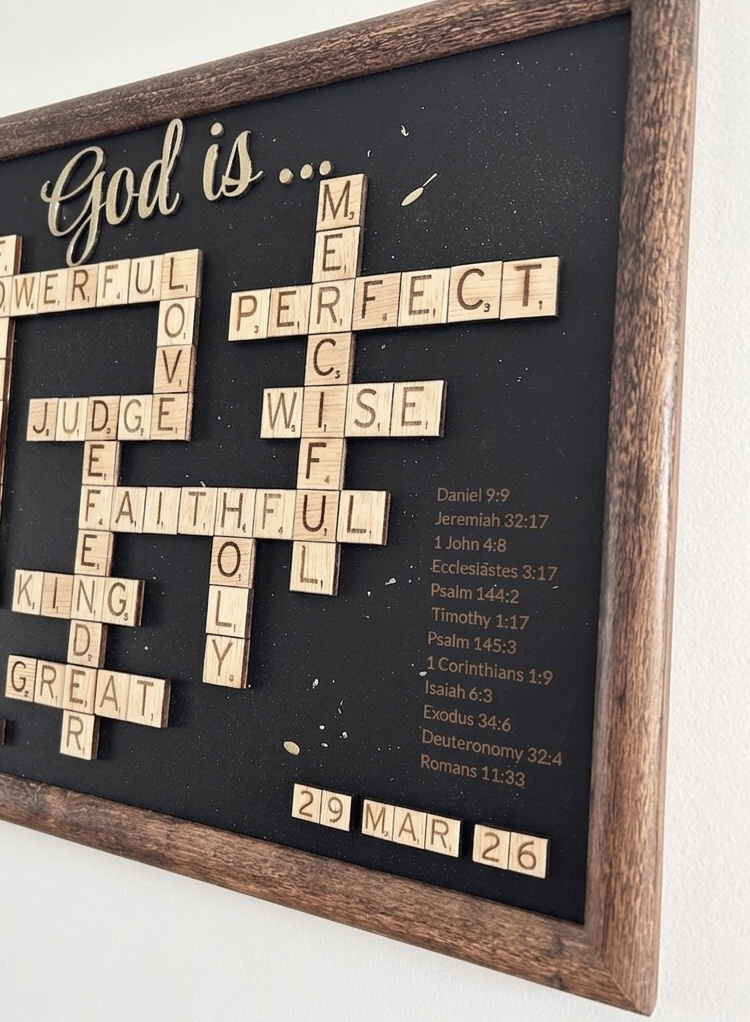 God is ...
MERCIFUL
OWERFUL
LOVE
PERFECT
WISE
JUDGE
DEFENDER
FAITHFUL
HOLY
KING
GREAT
Daniel 9:9
Jeremiah 32:17
1 John 4:8
Ecclesiastes 3:17
Psalm 144:2
Timothy 1:17
Psalm 145:3
1 Corinthians 1:9
Isaiah 6:3
Exodus 34:6
Deuteronomy 32:4
Romans 11:33
29 MAR 26